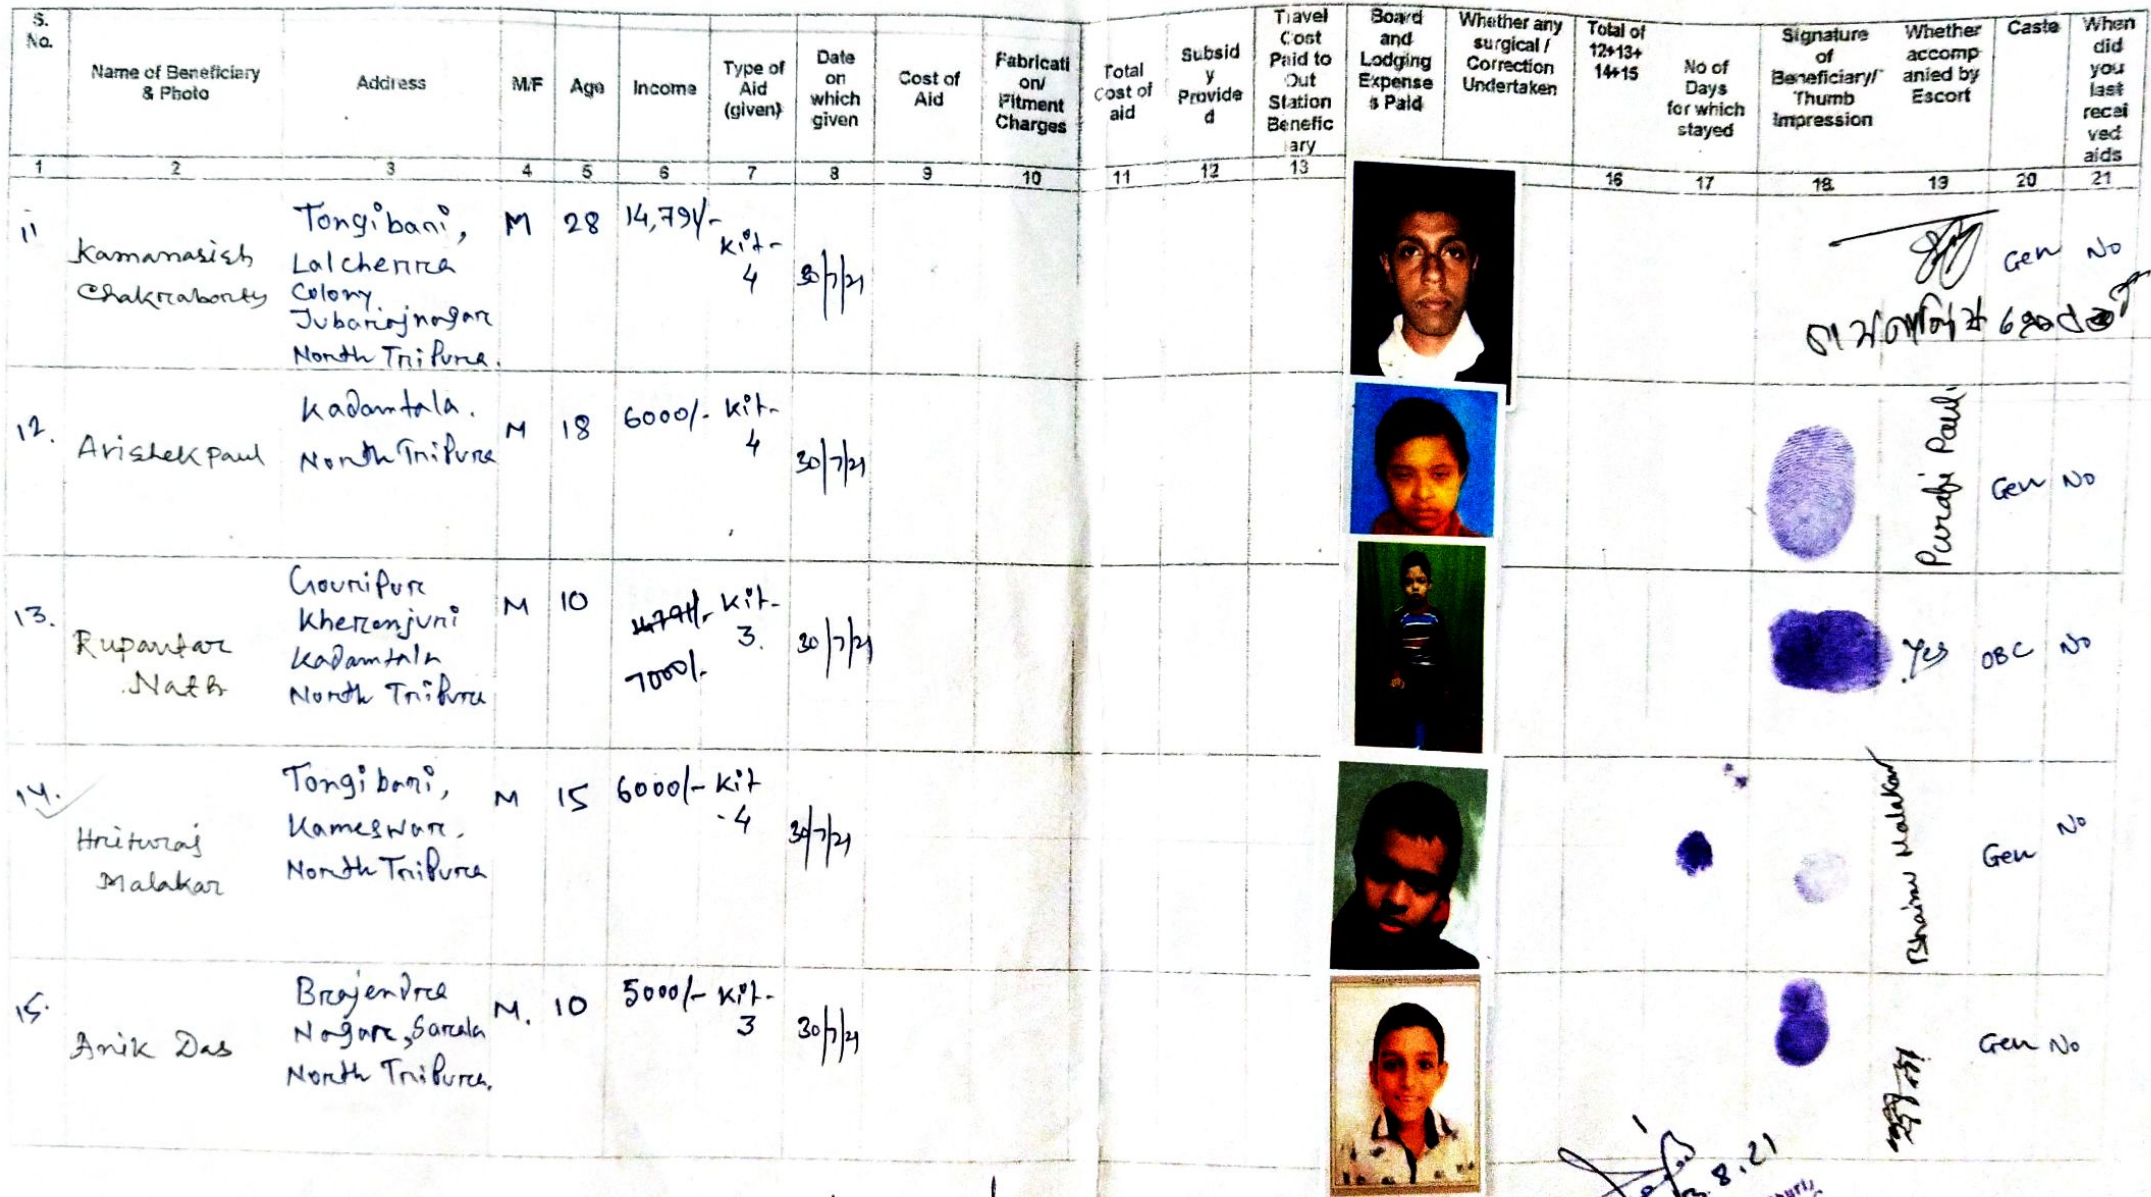 S. No.
Name of Beneficiary & Photo
Address
M/F
Age
Income
Type of Aid (given)
Date on which given
Cost of Aid
Fabricati on/ Fitment Charges
Total Cost of aid
Subsid y Provide d
Travel Cost Paid to Out Station Benefic iary
Board and Lodging Expense s Paid
Whether any surgical / Correction Undertaken
Total of 12+13+ 14+15
No of Days for which stayed
Signature of Beneficiary/ Thumb Impression
Whether accomp anied by Escort
Caste
When did you last recei ved aids
1 2 3 4 5 6 7 8 9 10 11 12 13 16 17 18 19 20 21
11 Kamanasish Chakraborty
Tongibari,
Lalcherra
Colony
Jubarajnagar
North Tripura.
M 28 14,791/- Kit-4 30/7/21 Gen No
12. Avishek Paul
Kadamtala.
North Tripura
M 18 6000/- Kit-4 30/7/21 Purabi Paul Gen No
13. Rupantar Nath
Gouripur
Kherenjuri
Kadamtala
North Tripura
M 10 7000/- Kit-3. 30/7/21 Yes OBC No
14. Hrituraj Malakar
Tongibari,
Kameswar.
North Tripura
M 15 6000/- Kit-4 30/7/21 Malakar Gen No
15. Anik Das
Brajendra
Nagar, Sarala
North Tripura.
M. 10 5000/- Kit-3 30/7/21 Gen No
8.21